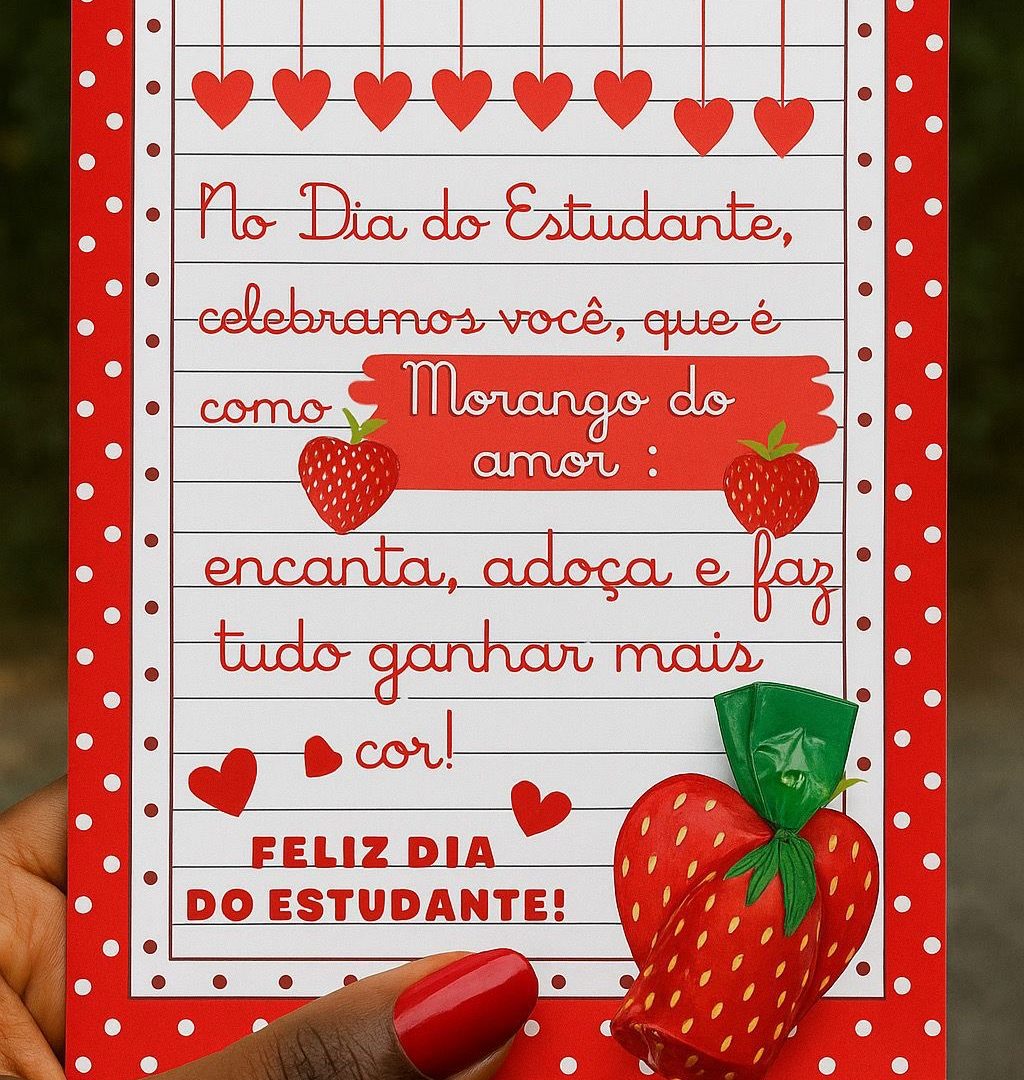 No Dia do Estudante,
celebramos você, que é
como Morango do
amor :
encanta, adoça e faz
tudo ganhar mais
cor!
FELIZ DIA
DO ESTUDANTE!